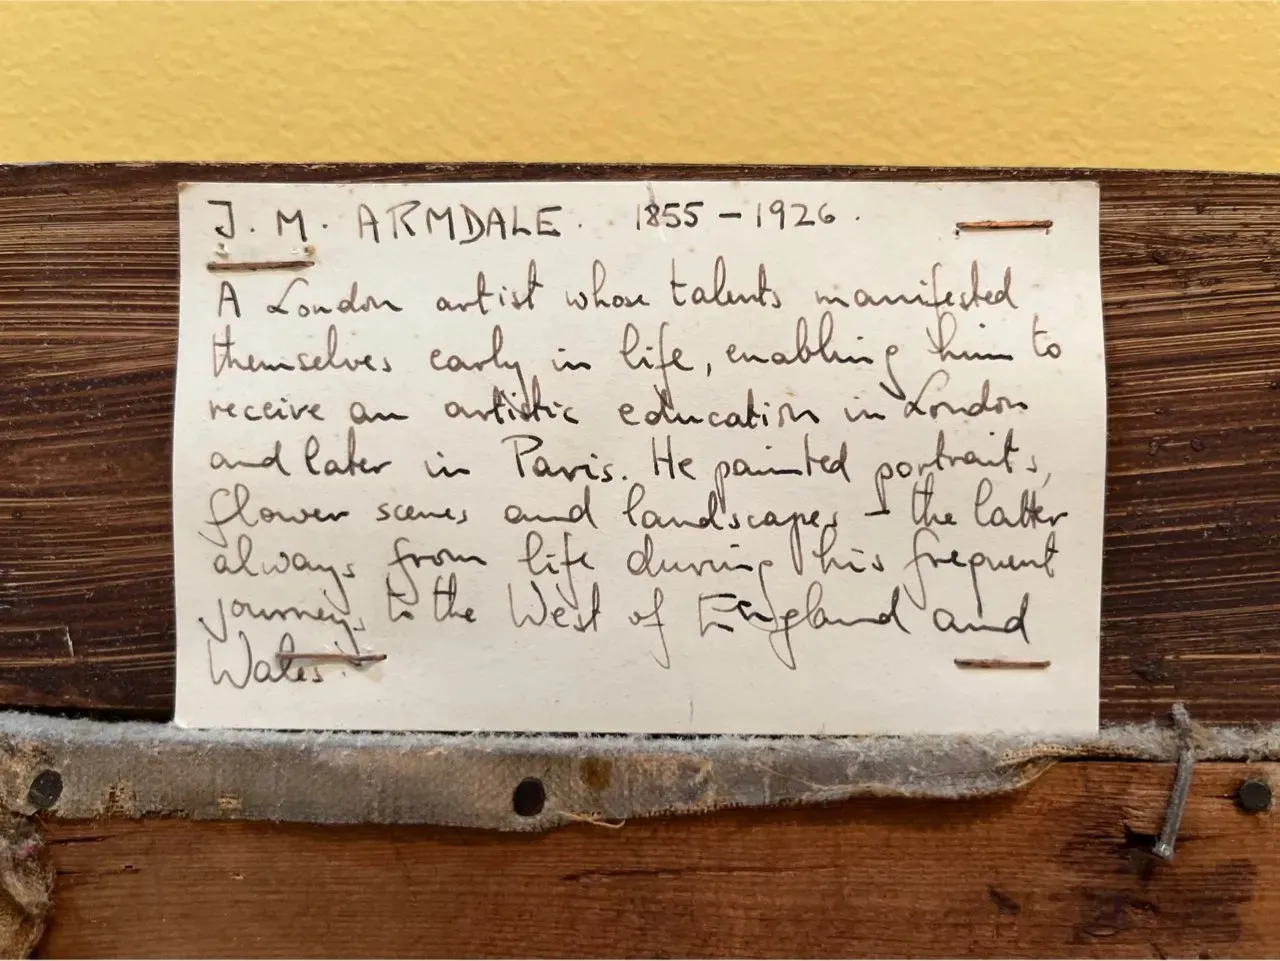 J. M. ARMDALE. 1855 – 1926.
A London artist whose talents manifested
themselves early in life, enabling him to
receive an artistic education in London
and later in Paris. He painted portraits,
flower scenes and landscapes – the latter
always from life during his frequent
journeys to the West of England and
Wales.